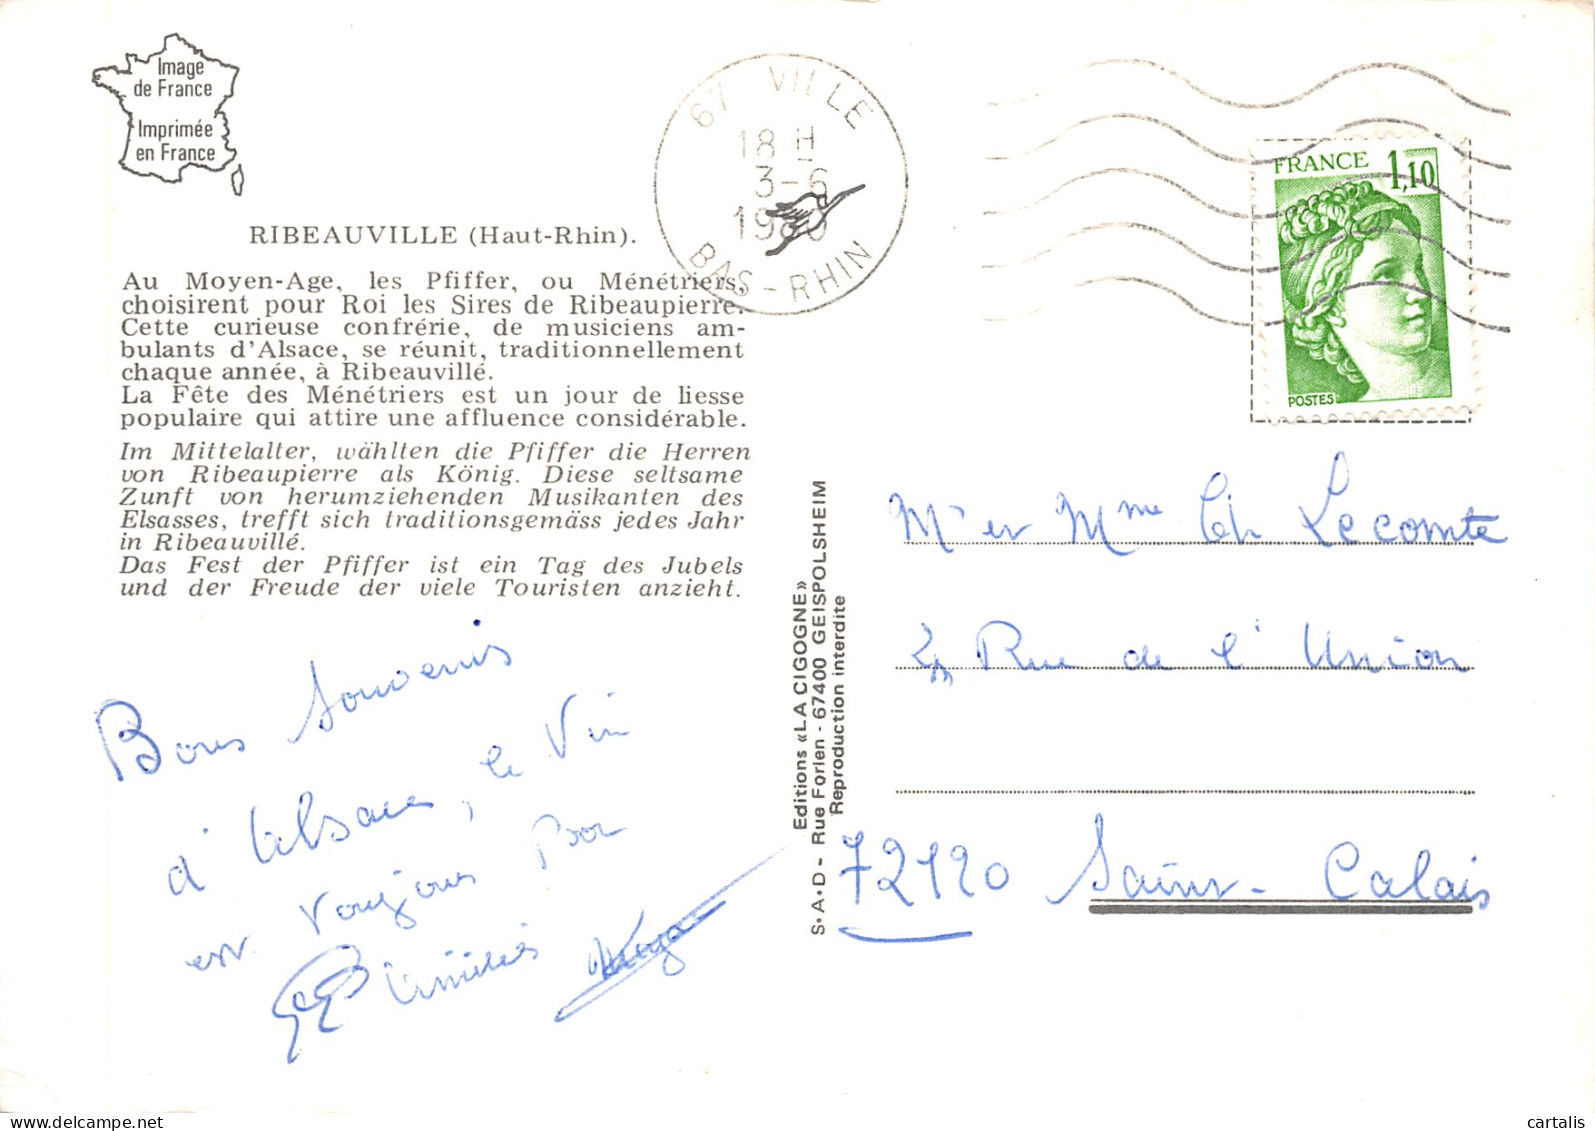 Image
de France
Imprimée
en France
RIBEAUVILLE (Haut-Rhin).
Au Moyen-Age, les Pfiffer, ou Ménétriers,
choisirent pour Roi les Sires de Ribeaupierre.
Cette curieuse confrérie, de musiciens am-
bulants d'Alsace, se réunit, traditionnellement
chaque année, à Ribeauvillé.
La Fête des Ménétriers est un jour de liesse
populaire qui attire une affluence considérable.
Im Mittelalter, wählten die Pfiffer die Herren
von Ribeaupierre als König. Diese seltsame
Zunft von herumziehenden Musikanten des
Elsasses, trefft sich traditionsgemäss jedes Jahr
in Ribeauvillé.
Das Fest der Pfiffer ist ein Tag des Jubels
und der Freude der viele Touristen anzieht.
Bons Souvenirs
d'Alsace, le Vin
est toujours Bon
Amitiés
67 VILLE
18 H
3-6
1980
BAS-RHIN
FRANCE 1,10
POSTES
Editions «LA CIGOGNE»
S•A•D - Rue Forlen - 67400 GEISPOLSHEIM
Reproduction interdite
Mr et Mme Ch Lecomte
Rue de l'Union
72120 Saint-Calais
delcampe.net
cartalis